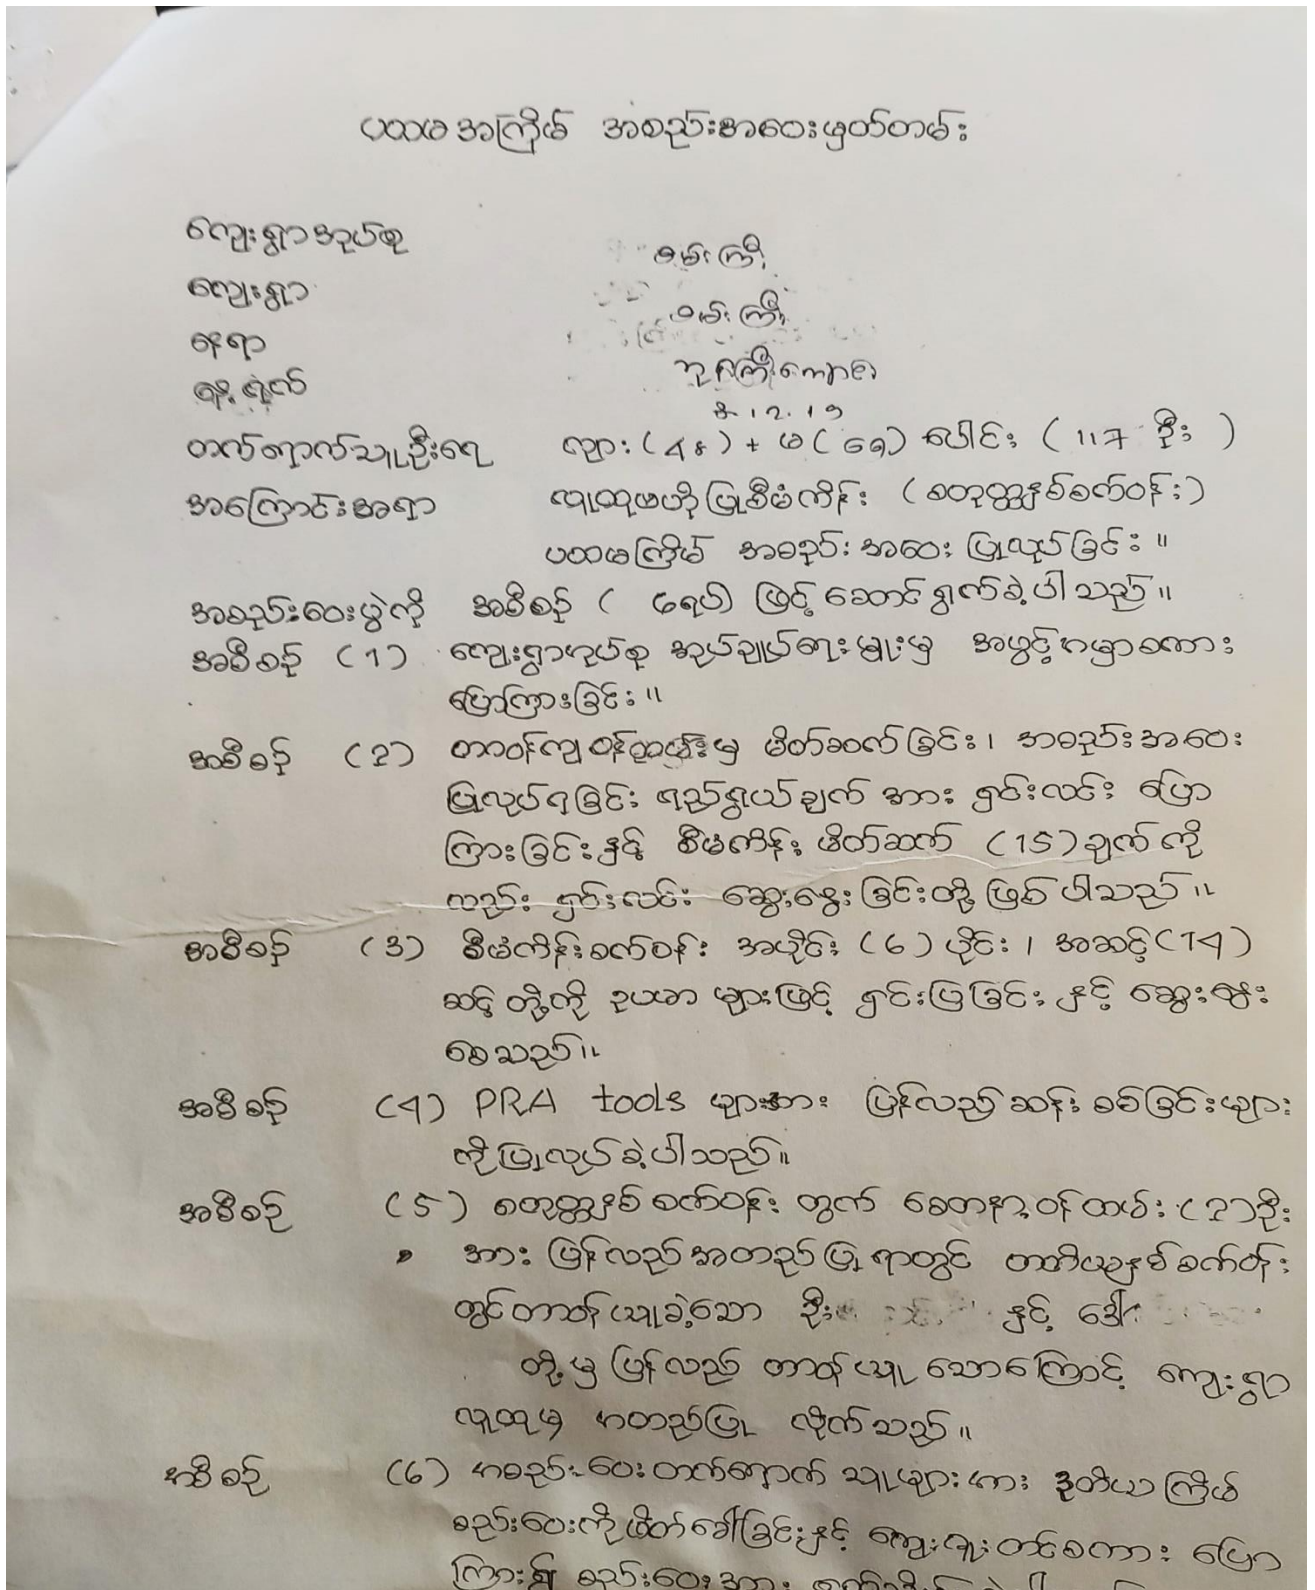 ပထမအကြိမ် အစည်းအဝေးမှတ်တမ်း
ကျေးရွာအုပ်စု စမ်းကြီး
ကျေးရွာ စမ်းကြီး
နေရာ ဘုန်းကြီးကျောင်း
ရနေ့ရက် 12. 19
တက်ရောက်သူဦးရေ ကျား (48) + မ (69) ပေါင်း (117 ဦး)
အကြောင်းအရာ လူထုဗဟိုပြုစီမံကိန်း (စတုတ္ထနှစ်စက်ဝန်း)
ပထမကြိမ် အစည်းအဝေး ပြုလုပ်ခြင်း။
အစည်းဝေးပွဲကို အစီစဉ် ( ၆ရပ်) ဖြင့် ဆောင်ရွက်ခဲ့ပါသည်။
အစီစဉ် (1) ကျေးရွာအုပ်စု အုပ်ချုပ်ရေးမှူးမှ အဖွင့်အမှာစကား
ပြောကြားခြင်း။
အစီစဉ် (2) တာဝန်ကျဝန်ထမ်းမှ မိတ်ဆက်ခြင်း၊ အစည်းအဝေး
ပြုလုပ်ရခြင်း ရည်ရွယ်ချက် အား ရှင်းလင်း ပြော
ကြားခြင်းနှင့် စီမံကိန်း မိတ်ဆက် (15) ချက် ကို
လည်း ရှင်းလင်း ဆွေးနွေးခြင်းတို့ ဖြစ်ပါသည်။
အစီစဉ် (3) စီမံကိန်းစက်ဝန်း အပိုင်း (6) ပိုင်း၊ အဆင့် (14)
ဆင့် တို့ကို ဥပမာ များဖြင့် ရှင်းပြခြင်း နှင့် ဆွေးနွေး
စေသည်။
အစီစဉ် (4) PRA tools များအား ပြန်လည်ဆန်းစစ်ခြင်းများ
ကိုပြုလုပ်ခဲ့ပါသည်။
အစီစဉ် (5) စတုတ္ထနှစ် စက်ဝန်း တွက် စေတနာ့ဝန်ထမ်း (2) ဦး
အား ပြန်လည်အတည်ပြု ရာတွင် တတိယနှစ်စက်ဝန်း
တွင်တာဝန်ယူခဲ့သော ဦး နှင့် ဒေါ်
တို့မှ ပြန်လည် တာဝန်ယူ သောကြောင့် ကျေးရွာ
လူထုမှ အတည်ပြု လိုက်သည်။
အစီစဉ် (6) အစည်းဝေးတက်ရောက် သူများအား ဒုတိယကြိမ်
စည်းဝေးကိုဖိတ်ခေါ်ခြင်းနှင့် ကျေးဇူးတင်စကား ပြော
ကြား၍ စည်းဝေးအား